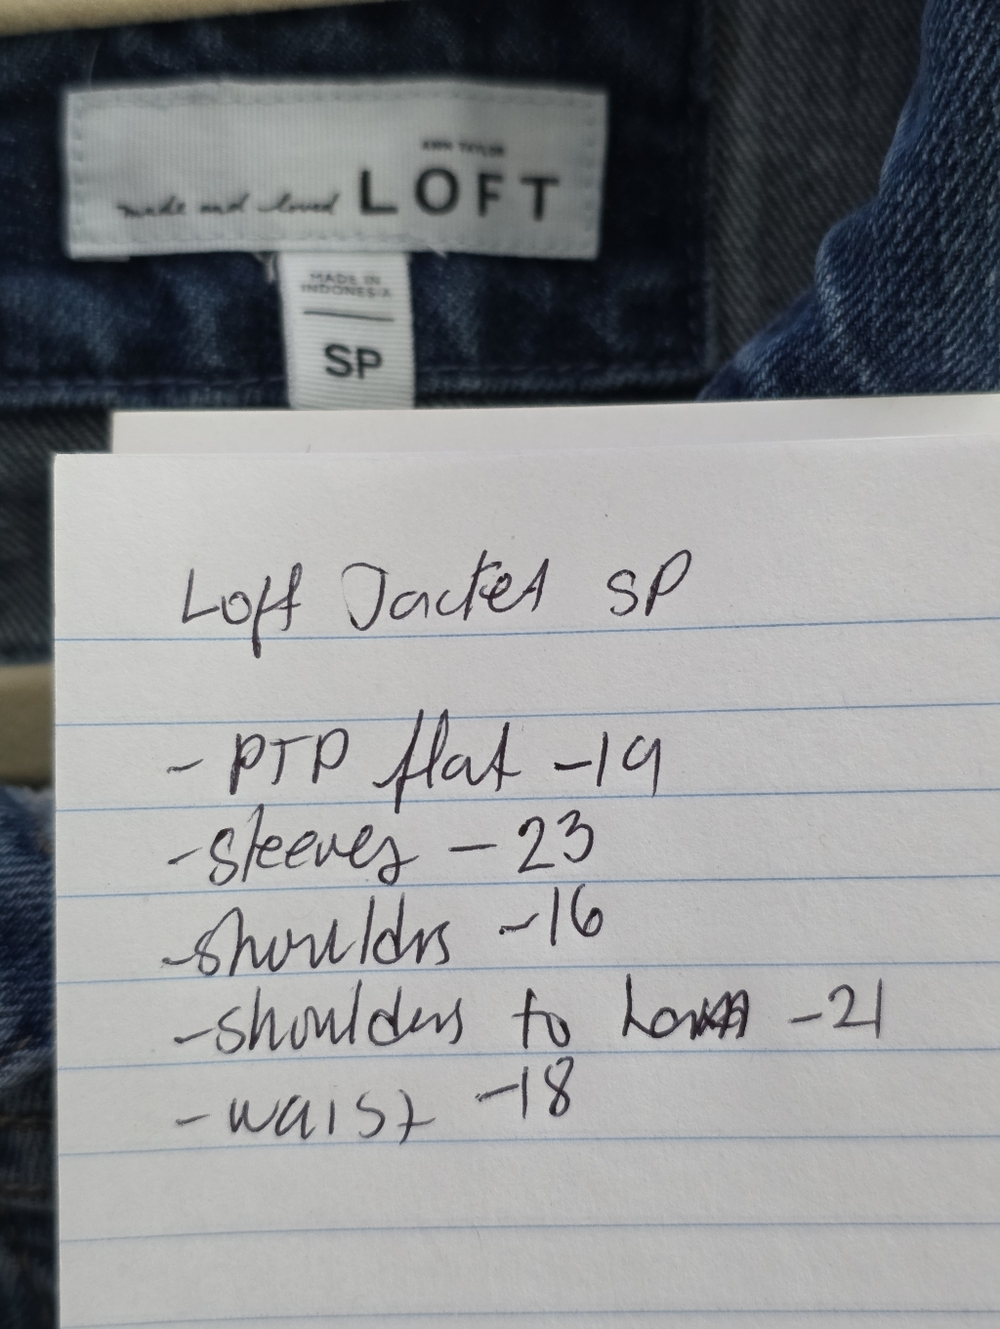 ANN TAYLOR
made and loved LOFT
MADE IN
INDONESIA
SP
Loft Jacket SP
- PTP flat - 19
- sleeves - 23
- shouldrs - 16
- shoulders to - 21
- waist - 18